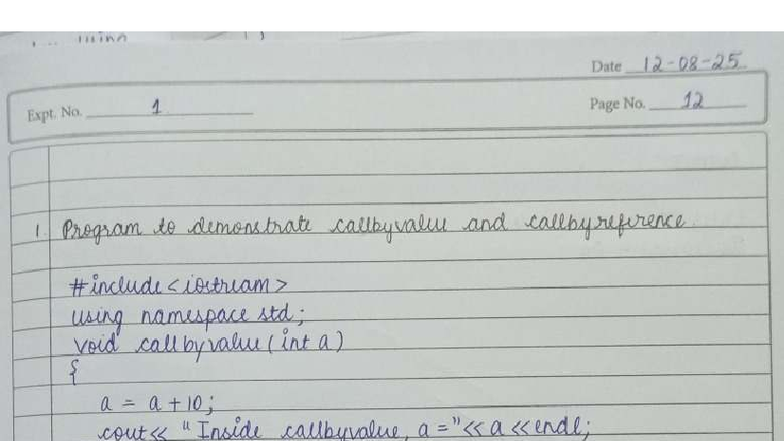 using
Date 12-08-25
Expt. No. 1
Page No. 12
1. Program to demonstrate callbyvalue and callbyreference
#include <iostream>
using namespace std;
void callbyvalue (int a)
{
a = a + 10;
cout << "Inside callbyvalue, a =" << a << endl;